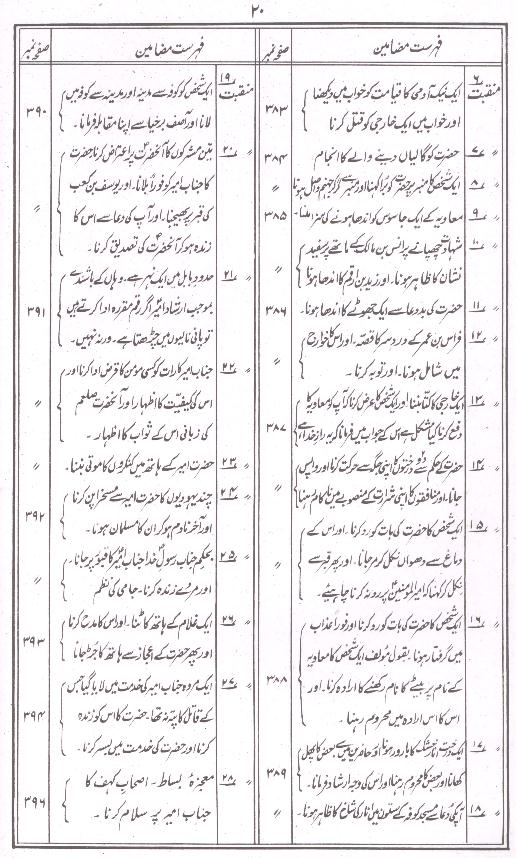 ۲۰
فہرست مضامین صفحہ نمبر
منقبت ۶ ایک نیک آدمی کا قیامت کو خواب میں دیکھنا
اور خواب میں ایک خارجی کو قتل کرنا ۳۸۳
۷ حضرت کو گالیاں دینے والے کا انجام ۳۸۴
۸ ایک شخص کا منبر پر حضرت کو برا کہنا اور منبر سے گر کر جہنم واصل ہونا 〃
۹ معاویہ کے ایک جاسوس کو اندھا ہونے کی سزا ملنا۔ ۳۸۵
۱۰ شہادت چھپانے پر انس بن مالک کے ماتھے پر سفید
نشان کا ظاہر ہونا۔ اور زید بن ارقم کا اندھا ہونا 〃
۱۱ حضرت کی بددعا سے ایک جھوٹے کا اندھا ہونا۔ ۳۸۶
۱۲ فراس بن عمر کے درد سر کا قصہ۔ اور اس کا خوارج
میں شامل ہونا۔ اور توبہ کرنا۔ 〃
۱۳ ایک خارجی کا کتا بننا اور ایک شخص کا عرض کرنا کہ آپ کو معاویہ کا
دفع کرنا کیا مشکل ہے اس کے جواب میں فرمانا کہ یہ راز خدا ہے ۳۸۷
۱۴ حضرت کے حکم سے دو درختوں کا اپنی جگہ سے حرکت کرنا اور واپس
جانا۔ اور منافقوں کا اپنی شرارت کے منصوبے میں ناکام رہنا 〃
۱۵ ایک شخص کا حضرت کی بات کو رد کرنا۔ اور اس کے
دماغ سے دھواں نکل کر مر جانا۔ اور پھر قبر سے
نکل کر کہنا کہ امیرالمومنینؑ پر رد نہ کرنا چاہیئے۔ 〃
۱۶ ایک شخص کا حضرت کی بات کو رد کرنا اور فوراً عذاب
میں گرفتار ہونا۔ بقول مؤلف ایک شخص کا معاویہ
کے نام پر بیٹے کا نام رکھنے کا ارادہ کرنا۔ اور
اس کا اس ارادہ میں محروم رہنا۔ ۳۸۸
۱۷ ایک درخت خشک کا بارور ہونا اور حاضرین میں سے بعض کا پھل
کھانا اور بعض کا محروم رہنا اور اس کی وجہ ارشاد فرمانا۔ ۳۸۹
۱۸ آپ کی دعا سے مسجد کوفہ کے ستون میں انار کی شاخ کا ظاہر ہونا۔ 〃
فہرست مضامین صفحہ نمبر
منقبت ۱۹ ایک شخص کو کوفہ سے مدینہ اور مدینہ سے کوفہ میں
لانا اور آصف برخیا سے اپنا مقابلہ فرمانا۔ ۳۹۰
۲۰ تین مشرکوں کا آنحضرتؐ پر اعتراض کرنا حضرت
کا جناب امیر کو فوراً بلانا۔ اور یوسف بن کعب
کی قبر پر بھیجنا۔ اور آپ کی دعا سے اس کا
زندہ ہو کر آنحضرتؐ کی تصدیق کرنا۔ 〃
۲۱ حدود بابل میں ایک نہر ہے۔ وہاں کے باشندے
بموجب ارشاد امیرؑ اگر رقم مقررہ ادا کرتے ہیں
تو پانی نالیوں میں چڑھتا ہے۔ ورنہ نہیں۔ ۳۹۱
۲۲ جناب امیر کا رات کو کسی مومن کا قرض ادا کرنا اور
اس کی کیفیت کا اظہار اور آنحضرت صلعم
کی زبانی اس کے ثواب کا اظہار۔ 〃
۲۳ حضرت امیر کے ہاتھ میں کنکروں کا موتی بننا۔ 〃
۲۴ چند یہودیوں کا حضرت امیر سے مسخرا پن کرنا
اور آخر نادم ہو کر ان کا مسلمان ہونا۔ ۳۹۲
۲۵ بحکم جناب رسولؐ خدا جناب امیرؑ کا قبور پر جانا۔
اور مردے زندہ کرنا۔ جامی کی نظم 〃
۲۶ ایک غلام کے ہاتھ کاٹنا۔ اور اس کا مدح کرنا
اور پھر حضرت کے اعجاز سے ہاتھ کا جڑ جانا ۳۹۳
۲۷ ایک مردہ جناب امیر کی خدمت میں لایا گیا جس
کے قاتل کا پتہ نہ تھا۔ حضرت کا اس کو زندہ
کرنا اور حضرت کی خدمت میں بسر کرنا۔ ۳۹۴
۲۸ معجزۂ بساط۔ اصحاب کہف کا
جناب امیر پر سلام کرنا۔ ۳۹۶